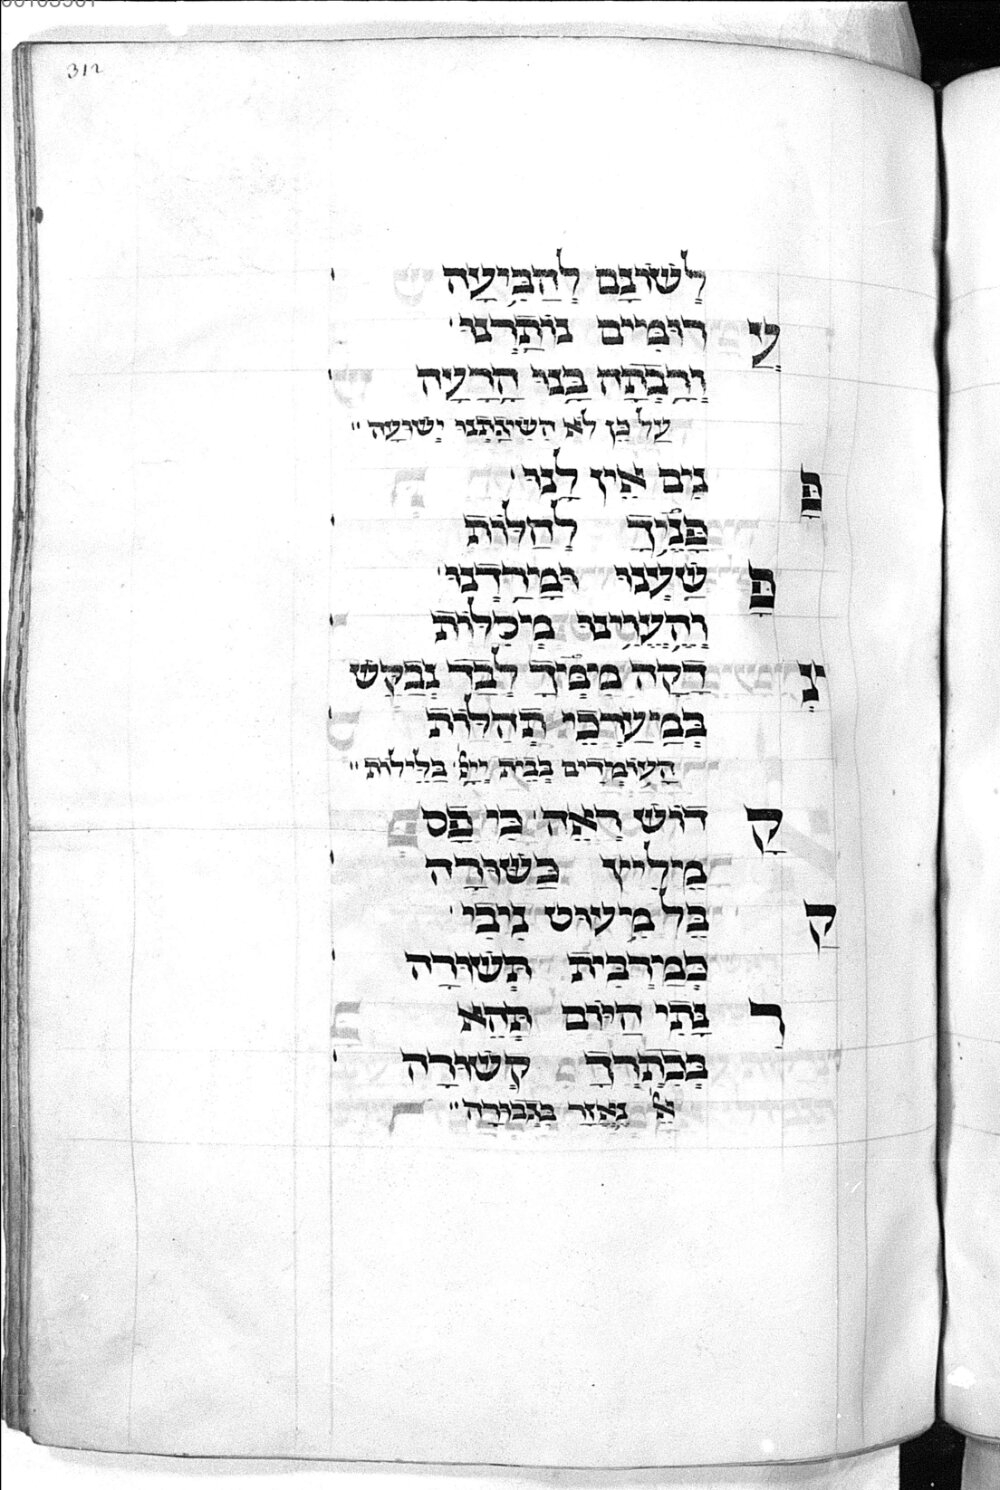 312
לְשׁוֹנָם לְהַבִּיעָה
עֲ רוּמִּים נוֹתַרְנוּ
וְרָבְתָה בָּנוּ הָרָעָה
עַל כֵּן לֹא הִשִּׂיגַתְנוּ יְשׁוּעָה
פָּ נִים אֵין לָנוּ
פָּנֶיךָ לְחַלּוֹת
פָּ שַׁעְנוּ וּמָרַדְנוּ
וְהֶעֱוִינוּ
צְ דָקָה מִמְּךָ לְבַד נְבַקֵּשׁ
בְּמַעַרְכֵי תְהִלּוֹת
הָעוֹמְדִים בְּבֵית יְיָ בַּלֵּילוֹת
קָ דוֹשׁ רְאֵה כִּי פַס
מֵלִיץ כַּשּׁוּרָה
קַ בֵּל מִיעוּט נִיבִי
כְּמַרְבִּית תְּשׁוּרָה
רִ נָּתִי הַיּוֹם תְּהֵא
בְּכִתְרְךָ קְשׁוּרָה
אֵל נֶאְזָר בִּגְבוּרָה